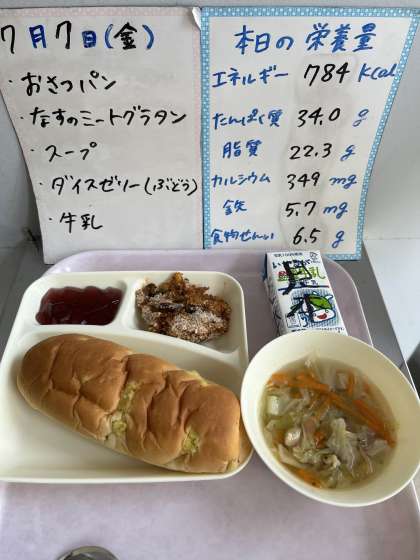 7月7日(金)
・おさつパン
・なすのミートグラタン
・スープ
・ダイスゼリー(ぶどう)
・牛乳
本日の栄養量
エネルギー 784 Kcal
たんぱく質 34.0 g
脂質 22.3 g
カルシウム 349 mg
鉄 5.7 mg
食物せんい 6.5 g